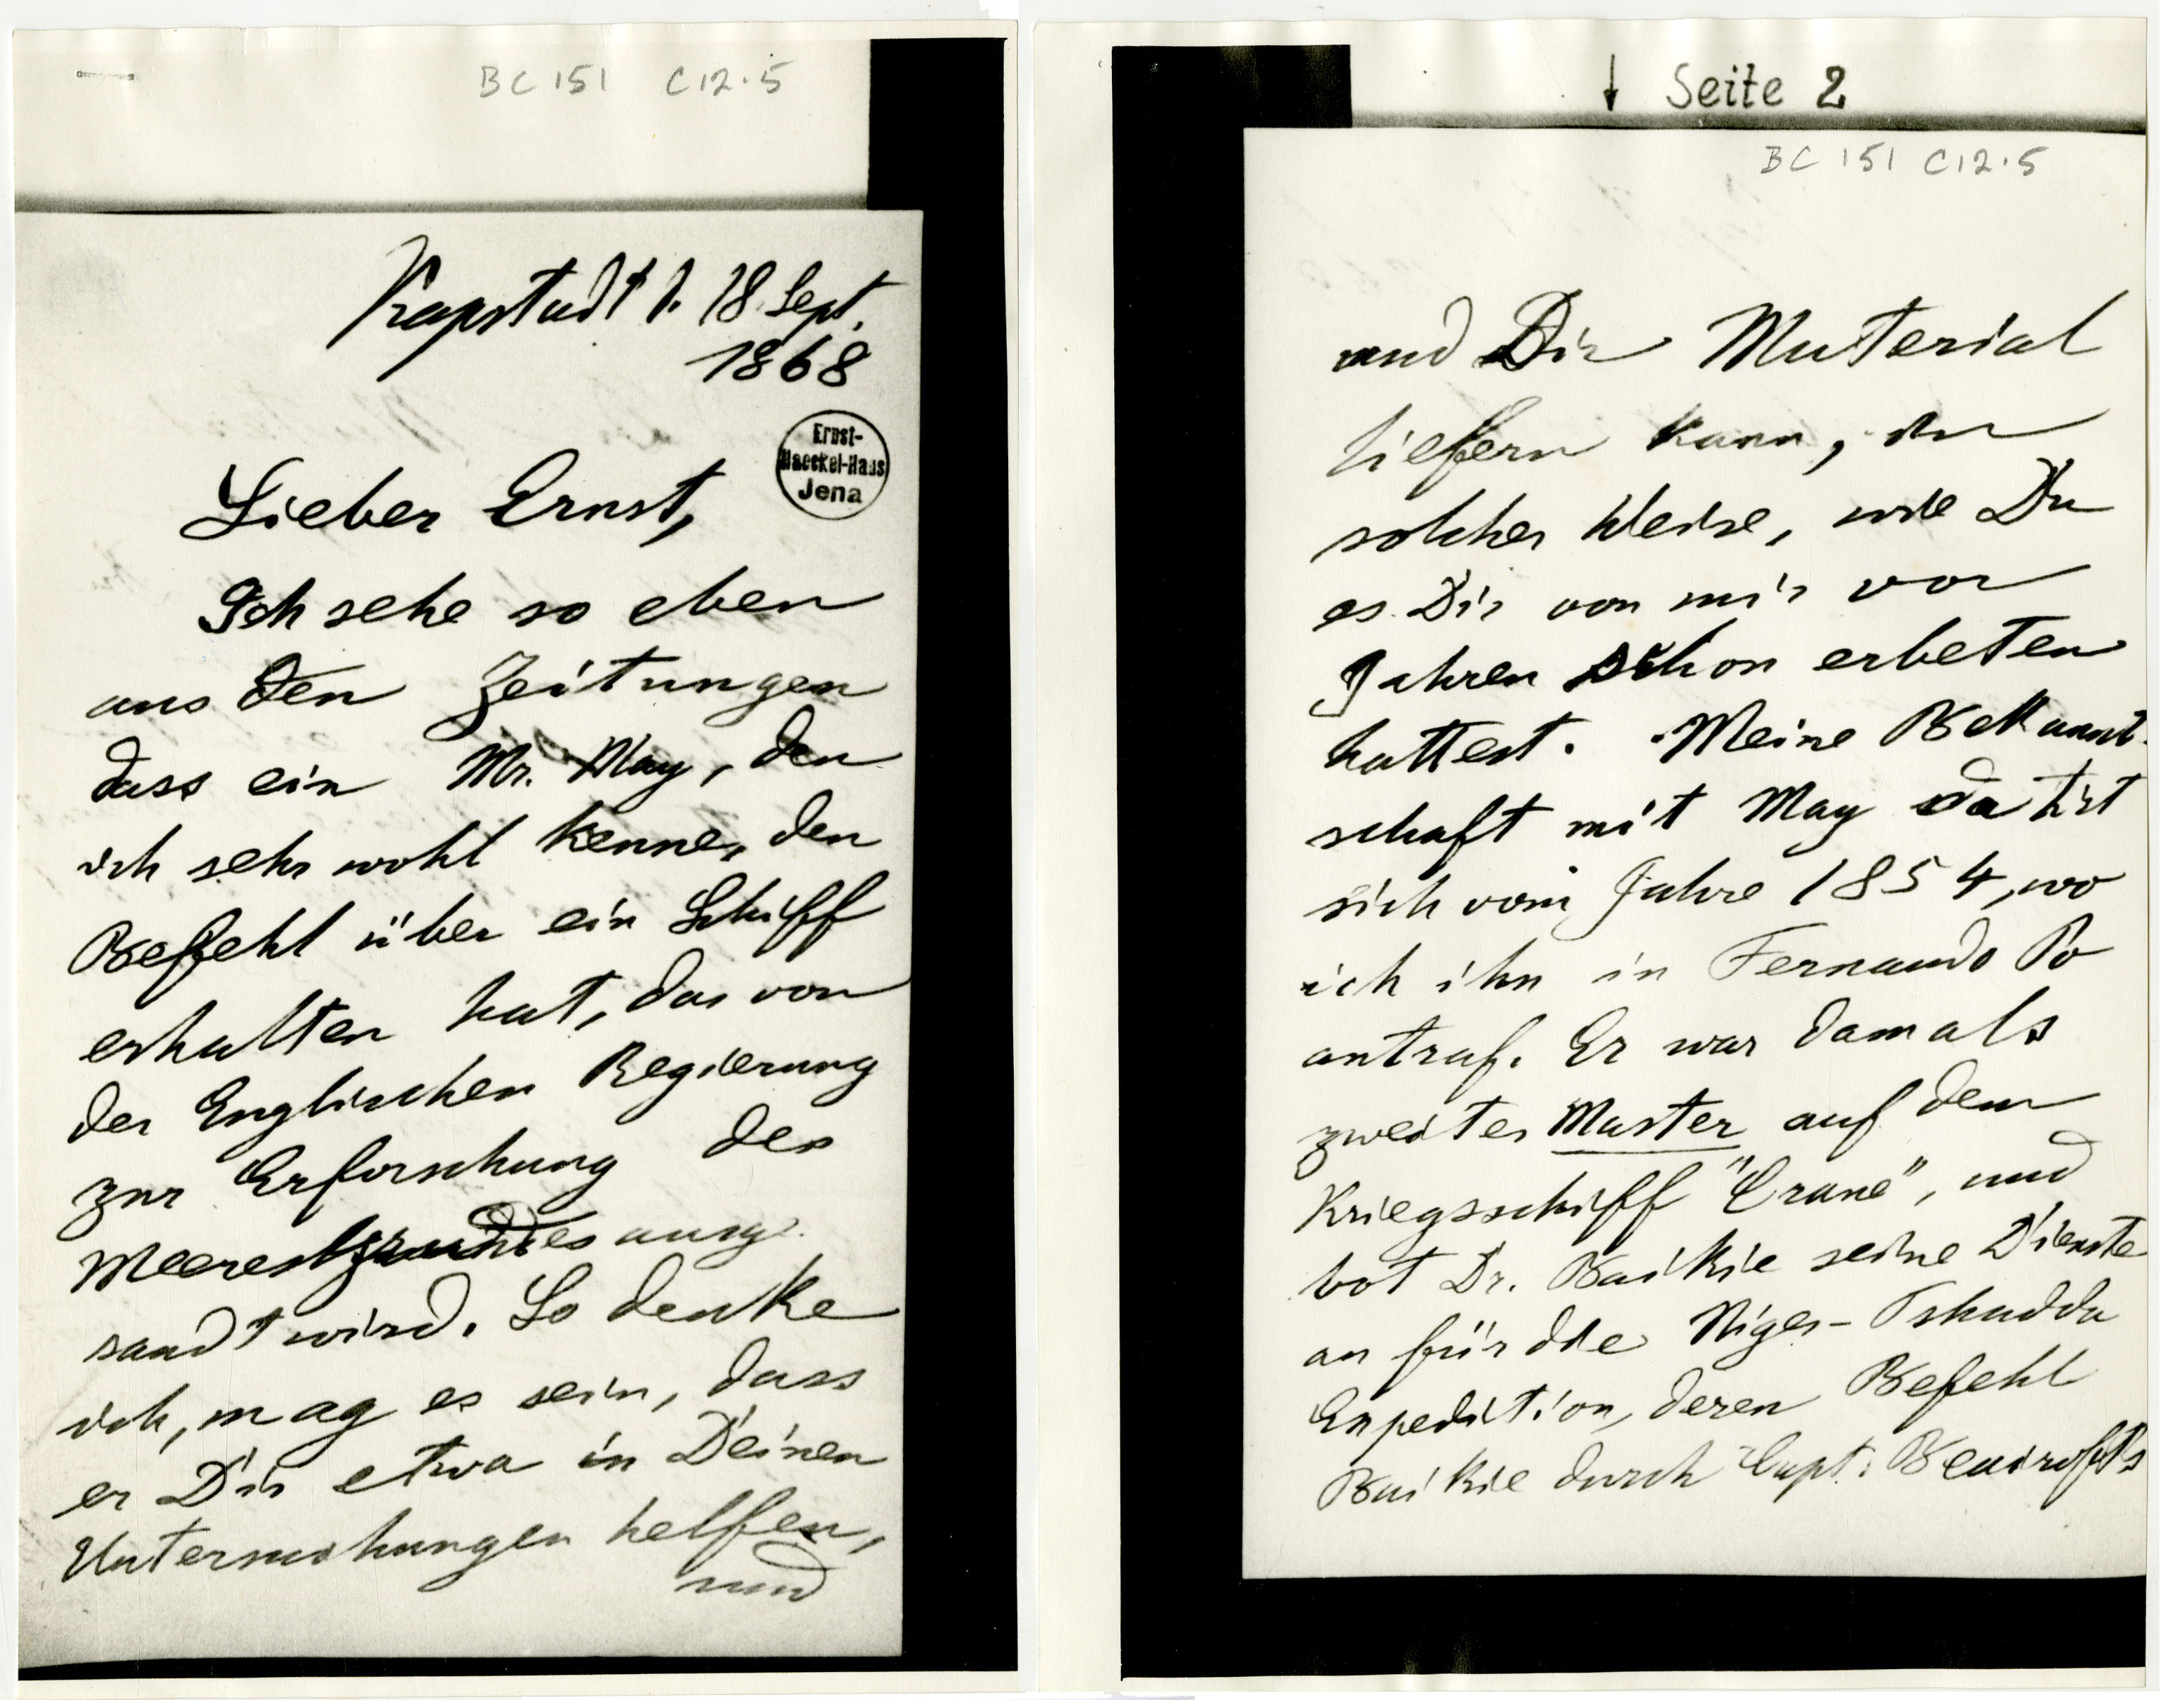 BC 151 C12.5
Kapstadt d. 18 Sept.
1868
Ernst-
Haeckel-Haus
Jena
Lieber Ernst,
Ich sehe so eben
aus den Zeitungen
dass ein Mr. May, den
ich sehr wohl kenne, den
Befehl über ein Schiff
erhalten hat, das von
der Englischen Regierung
zur Erforschung des
Meeresgrundes ausge-
sandt wird. So denke
ich, mag es sein, dass
er Dir etwa in Deinen
Untersuchungen helfen,
und
↓ Seite 2
BC 151 C12.5
und Dir Material
liefern kann, in
solcher Weise, wie Du
es Dir von mir vor
Jahren schon erbeten
hattest. Meine Bekannt-
schaft mit May datirt
sich vom Jahre 1854, wo
ich ihn in Fernando Po
antraf. Er war damals
zweiter Master auf dem
Kriegsschiff "Crane", und
bot Dr. Baikie seine Dienste
an für die Niger-Tshadda
Expedition, deren Befehl
Baikie durch Capt. Becrofts